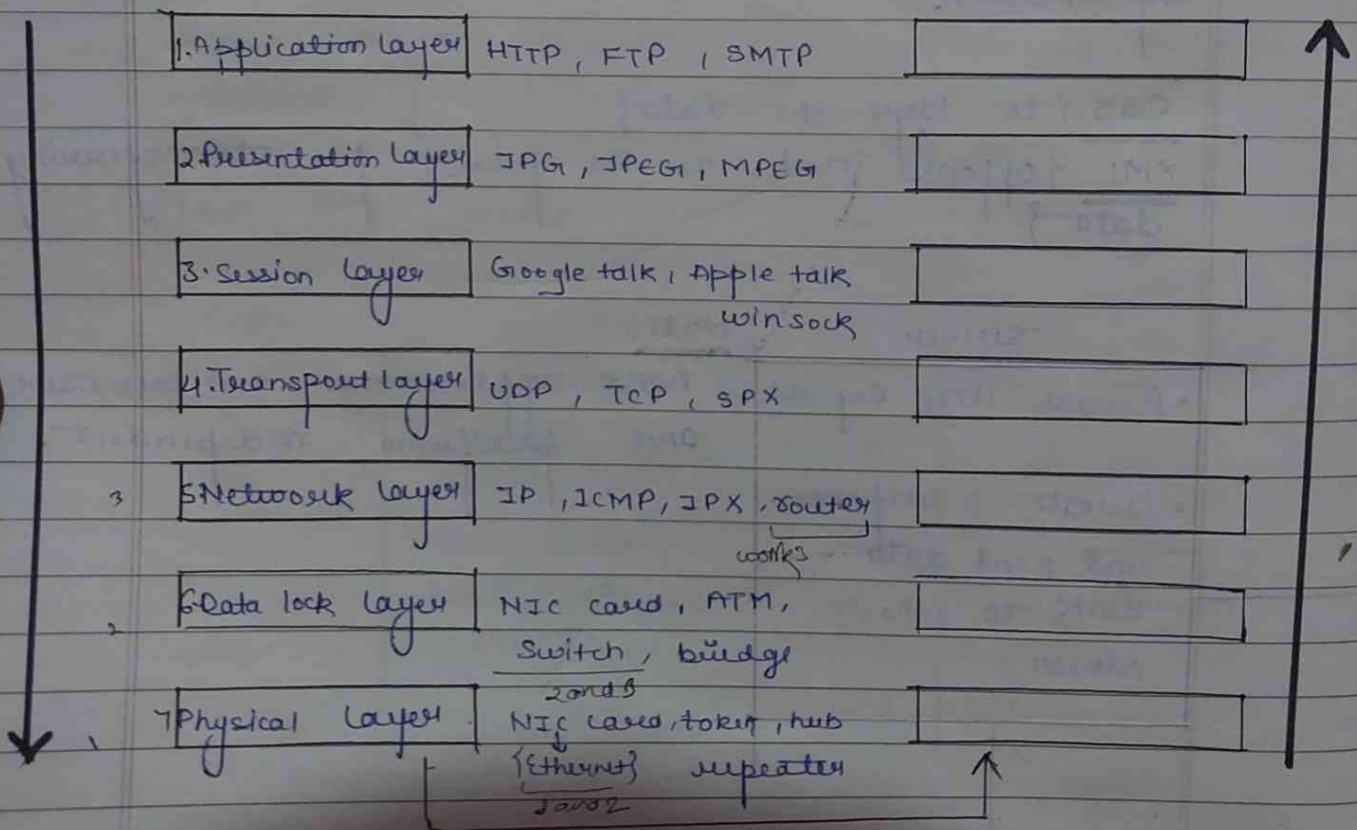 1.Application layer HTTP, FTP, SMTP
2.Presentation layer JPG, JPEG, MPEG
3.Session layer Google talk, Apple talk
winsock
4.Transport layer UDP, TCP, SPX
3 5 Network layer IP, ICMP, IPX, router
works
2 6.Data lock layer NIC card, ATM,
Switch, bridge
2 and 3
1 7 Physical layer NIC card, token, hub
{Ethernet} repeater
1 and 2